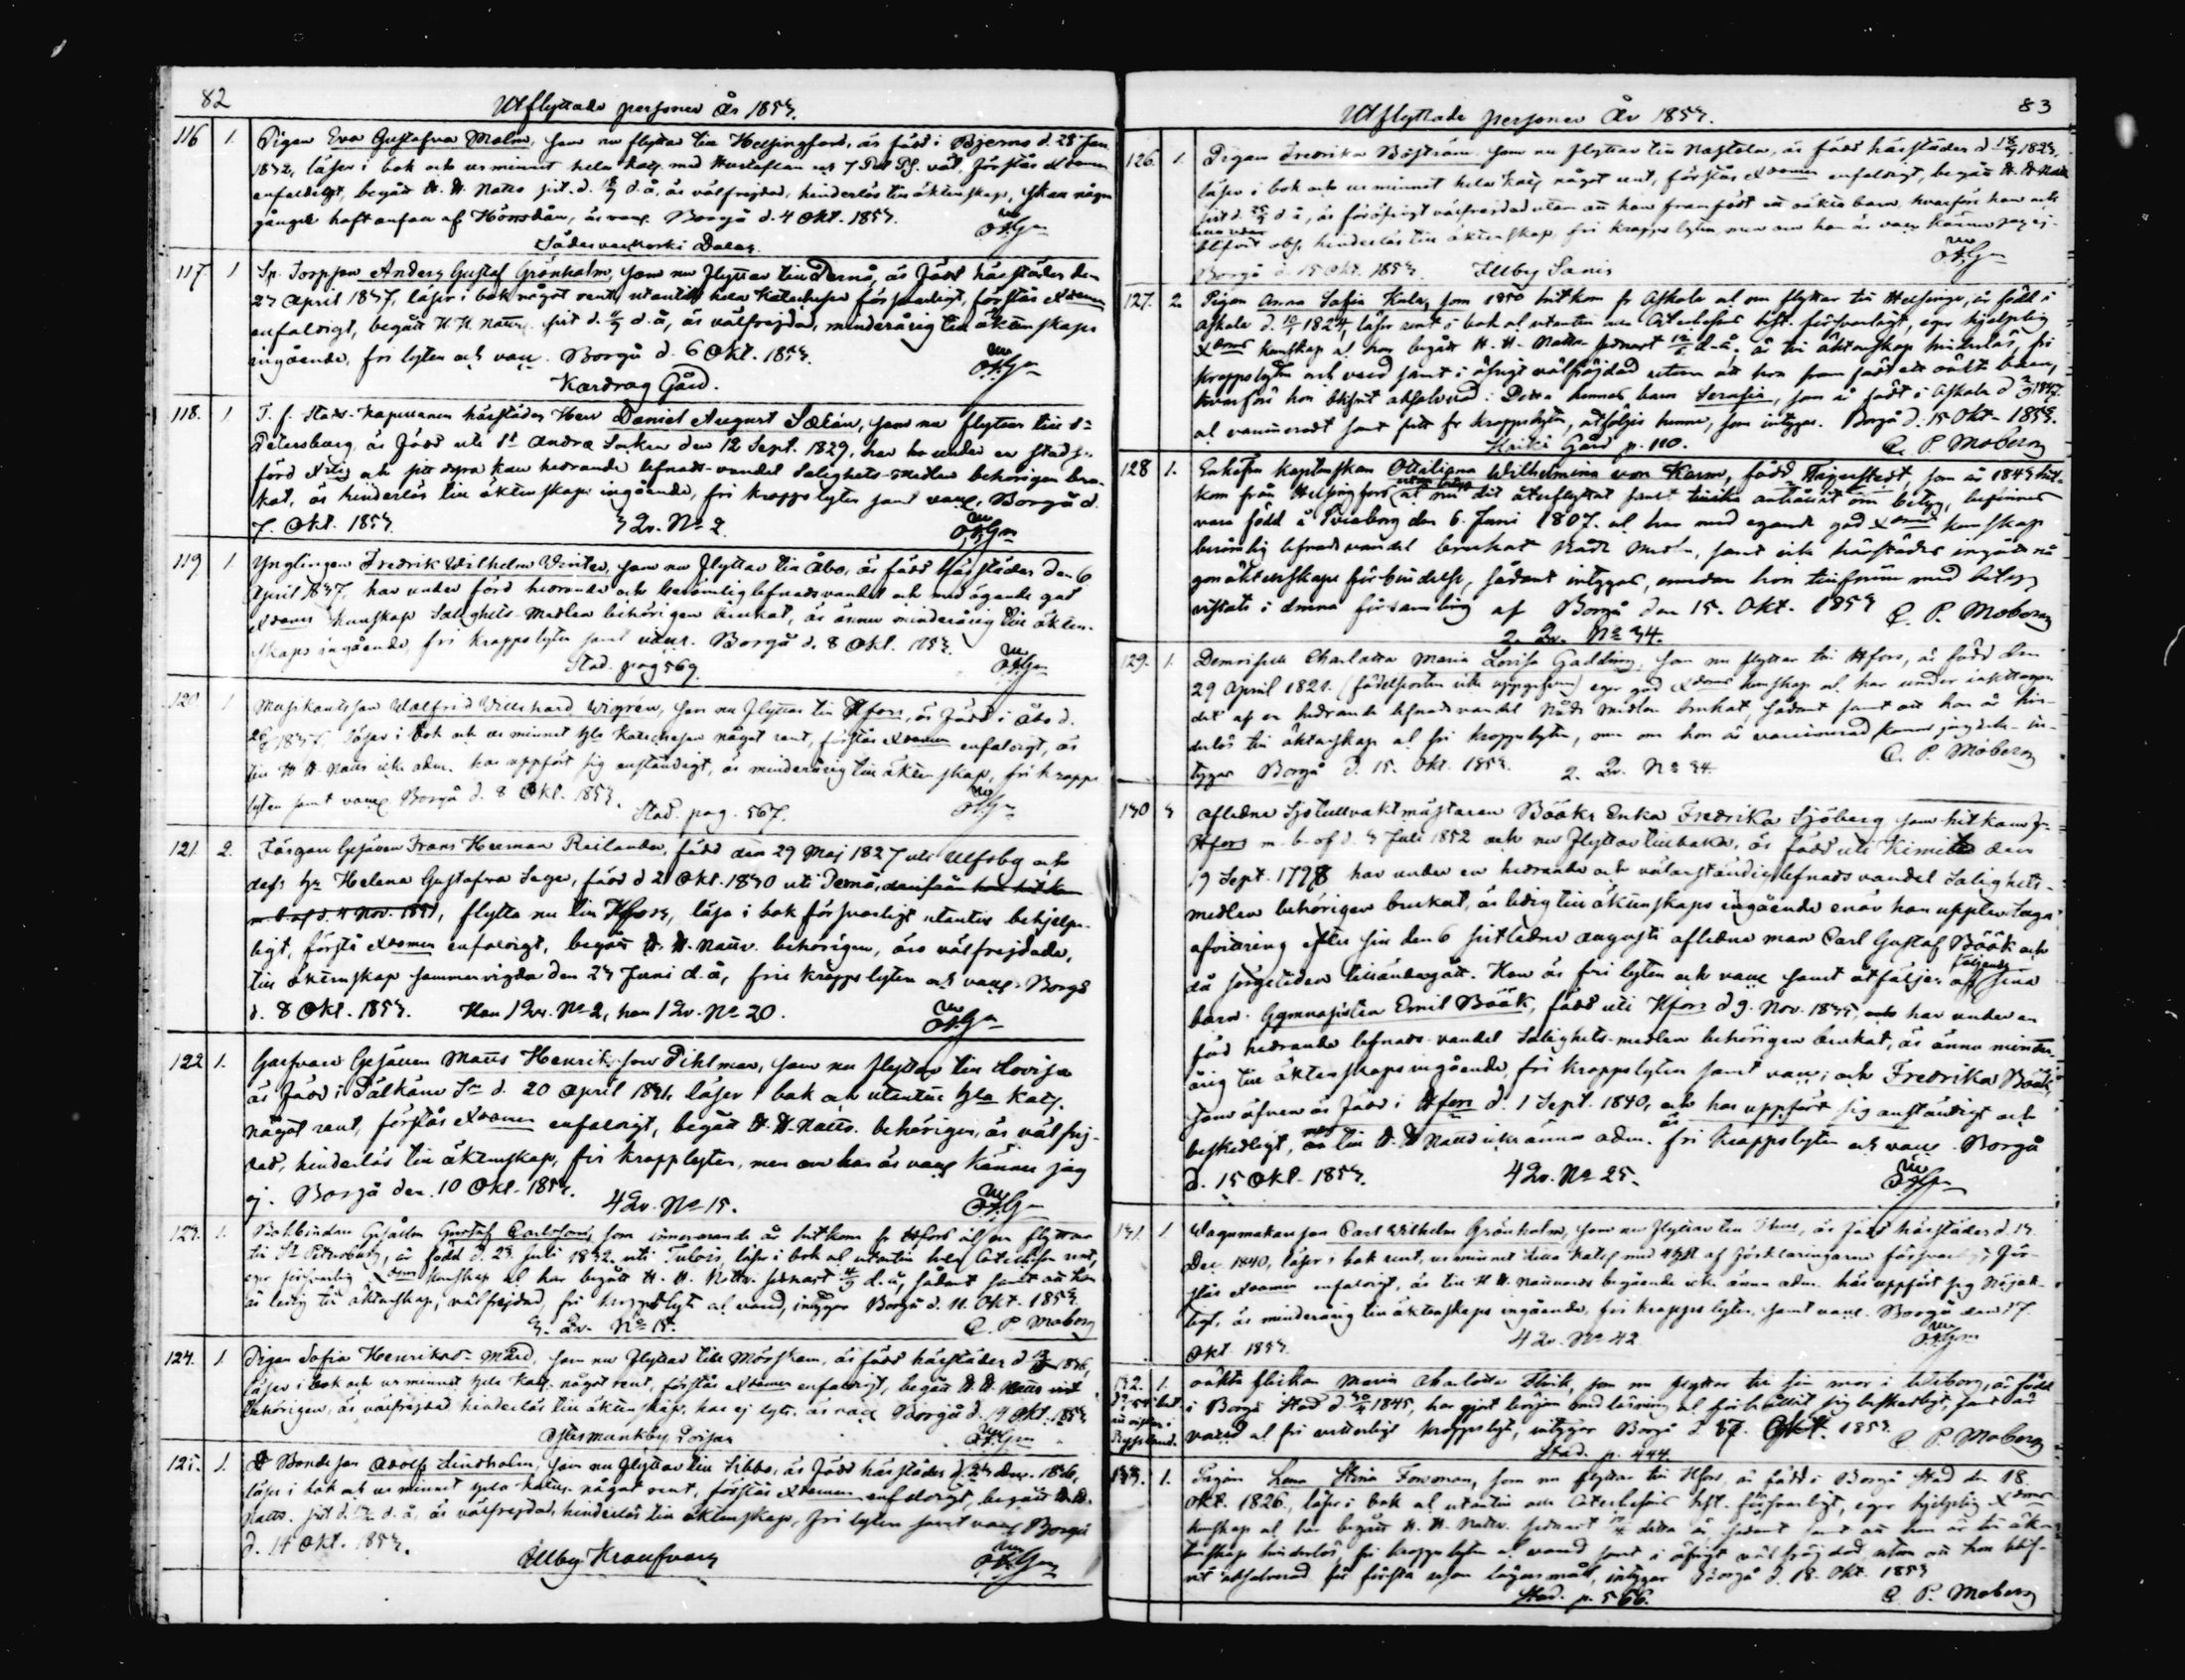 82
Utflyttade personer År 1853.
116 1. Pigan Eva Gustafva Malm, som nu flyttar till Helsingfors, är född i Bjerno d. 28 Jan
1832, läser i bok och ur minnet hela Kat. med Hustaflan och 7 Dav. Ps. väl, förstår Xdomen
enfaldigt, begått H. H. Nattv. sist d. d. å, är välfrejdad, hinderlös till äktenskap,
haft af är vacc. Borgå d. 4 Okt. 1853.
Dalas.
117 1 Sp. Torpson Anders Gustaf Grönholm, som nu flyttar till Pernå, är född härstädes den
23 April 1837, läser i bok något rent, utantill hela Katechesen försvarligt, förstår Xdomen
enfaldigt, begått H. H. Nattv. sist d. d. å, är välfrejdad, minderårig till äktenskaps
ingående, fri lyten och vacc. Borgå d. 6 Okt. 1853.
Kardrag Gård.
118. 1 T. f. Stads-Kaplanen härstädes Herr Daniel August Sokán, som nu flyttar till S:t
Petersburg, är född uti S:t Andræ Socken den 12 Sept. 1829, har under en städse
förd Xtlig och sitt dyra kall hedrande lefnads-vandel Salighets-medlen behörigen bru-
kat, är hinderlös till äktenskaps ingående, fri kroppslyten samt vacc. Borgå d.
7. Okt. 1853. 3 Qv. No 2.
119 1. Ynglingen Fredrik Wilhelm Winter, som nu flyttar till Åbo, är född härstädes den 6
April 1837, har under förd hedrande och berömlig lefnadsvandel och med ägande god
Xdoms kunskap Salighets-Medlen behörigen brukat, är ännu minderårig till äkten-
skaps ingående, fri kroppslyten samt vacc. Borgå d. 8 Okt. 1853.
Stad. pag 569.
120 1 Musikantson Walfrid Willehard Wigrén, som nu flyttar till Hfors, är född i Åbo d.
1837, läser i bok och ur minnet hela Katechesen något rent, förstår Xdomen enfaldigt, är
till H. H. Nattv. icke adm. har uppfört sig anständigt, är minderårig till äktenskap, fri kropps
lyten samt vacc. Borgå d. 8 Okt. 1853. Stad. pag. 567.
121 2. Färgare Gesällen Frans Herman Reilander, född den 29 Maj 1827 uti Ulfsby och
dess h:u Helena Gustafva Sager, född d 2 Okt. 1830 uti Pernå, darifrån hon hitkom
m. b. af d. 4 Nov. 1851, flytta nu till Hfors, läsa i bok försvarligt utantill behjelp-
ligt, förstå Xdomen enfaldigt, begått H. H. Nattv. behörigen, äro välfrejdade,
till äktenskap sammanvigda den 23 Juni d. å, frie kroppslyten och vacc. Borgå
d. 8 Okt. 1853. Han 1 Qv. No 2, hon 1 Qv. No 20.
122 1. Garfvare Gesällen Matts Henrik:son Pihlman, som nu flyttar till Lovisa
är född i Pälkäne S:n d. 20 April läser i bok och utantill h:la Kat.
något rent, förstår Xdomen enfaldigt, begått H. H. Nattv. behörigen, är välfrej-
dad, hinderlös till äktenskap, fri kropplyten, men om han är vacc. känner jag
ej. Borgå den 10 Okt. 1853. 4 Qv. No 15.
123. 1. Bokbindare Gesällen Gustaf Carlsson, som innevarande år hitkom fr Hfors och nu flyttar
till S:t Petersburg, är född d. 23 Juli 1832 uti läser i bok och utantill hela Catechesen rent,
eger försvarlig Xdoms kunskap och har begått H. H. Nattv. senast d. å, sådant samt att han
är ledig till äktenskap, välfrejdad, fri kroppslyte och vacc, intygar Borgå d. 11. Okt. 1853.
3. Qv. No 15. C. P. Moberg
124. 1. Pigan Sofia Henriksd:r Mård, som nu flyttar till Mörskom, är född härstädes d. 1836,
läser i bok och ur minnet hela Kat. något rent, förstår Xdomen enfaldigt, begått H. H. Nattv.
behörigen, är välfrejdad hinderlös till äktenskap, har ej lyte, är vacc Borgå d. 14 Okt. 1853
125. 1. Bonde son Adolf Lindholm, som nu flyttar till Sibbo, är född härstädes d.
läser i bok och ur minnet hela Katec. något rent, förstår Xdomen enfaldigt, begått H. H.
Nattv. sist d. d. å, är välfrejdad, hinderlös till äktenskap, fri lyten samt vacc Borgå
d. 14 Okt. 1853. Illby Kraufvars
83
Utflyttade personer År 1853.
126. 1. Pigan Fredrika Boström som nu flyttar till Nastola, är född härstädes d 1823,
läser i bok och ur minnet hela Kat. något rent, förstår Xdomen enfaldigt, begått H. H. Nattv
sist d. d. å, är för öfrigt välfrejdad utom att hon framfödt ett oäkta barn, hvarföre hon och
blifvit abs. hinderlös till äktenskap, fri kropps lyten, men om hon är vacc känner jag ej.
Borgå d. 15 Okt. 1853. Illby Sanis
127. 2. Pigan Anna Sofia Kull, som 1850 hitkom fr Askola och nu flyttar till Helsinge, är född i
Askola d. 1824, läser rent i bok och utantill försvarligt, eger hjelplig
Xdoms kunskap och har begått H. H. Nattv. senast d. å, är till äktenskap hinderlös, fri
kroppslyten och vacc samt i öfrigt välfrejdad utom att hon framfödt ett oäkta barn,
hvarföre hon blifvit absolverad: Detta hennes barn Serafia, som är född i Askola d 1847
och vaccinerad samt fritt fr kroppslyten, åtföljer henne, som intygas. Borgå d. 15 Okt. 1853.
Gård p. 110. C. P. Moberg
128 1. Enkefru Kaptenskan Ottiliana Wilhelmina von Karm, född Tigerstedt, som år 1843 hit-
kom från Helsingfors och nu dit återflyttat samt anhållit om betyg, befinnes
vara född å Sveaborg den 6. Juni 1807. och har med egande god Xdoms kunskap
berömlig lefnadsvandel brukat Nåde medlen, samt icke härstädes ingått nå-
gon äktenskaps förbindelse, sådant intygas, emedan hon tillförene med betyg
vistats i denna församling af Borgå den 15. Okt. 1853 C. P. Moberg
2. Qv. No 34.
129. 1. Demoiselle Charlotta Maria Lovisa Gadding, som nu flyttar till Hfors, är född den
29 April 1821. (födelseorten icke uppgifven) eger god Xdoms kunskap och har under iakttagan-
det af en hedrande lefnadsvandel Nåde medlen brukat, sådant samt att hon är hin-
derlös till äktenskap och fri kroppslyten, men om hon är vaccinerad känner jag icke in-
tygar Borgå d. 15. Okt. 1853. 2. Qv. No 34. C. P. Moberg
130 3 Aflidne Sjötullvaktmästaren Bööks Enka Fredrika Sjöberg som hitkom fr.
Hfors m. b. af d. 3 Juli 1852 och nu flyttar tillbaka, är född uti Kimito den
9 Sept. 1798 har under en hedrande och välanständig lefnadsvandel Salighets-
medlen behörigen brukat, är ledig till äktenskaps ingående enär hon upplett laga
afvittring efter sin den 6 sistledne Augusti aflidne man Carl Gustaf Böök och
då sorgetiden tilländagått. Hon är fri lyten och vacc samt åtföljes af följande sina
barn: Gymnasisten Emil Böök, född uti Hfors d 9. Nov. 1835, har under en
förd hedrande lefnads-vandel Salighets-medlen behörigen brukat, är ännu minder-
årig till äktenskaps ingående, fri kroppslyten samt vacc; och Fredrika Böök,
som äfven är född i Hfors d. 1 Sept. 1840, och har uppfört sig anständigt och
beskedligt, men till H. H. Nattv icke ännu adm. är fri kroppslyten och vacc Borgå
d. 15 Okt. 1853. 4 Qv. No 25.
131. 1 Vagnmakareson Carl Wilhelm Grönholm, som nu flyttar till är född härstädes d. 13
Dec. 1840, läser i bok rent, ur minnet lilla Katech med af förklaringarne försvarligt för-
står Xdomen enfaldigt, är till H H. Nattvards begående icke ännu adm. har uppfört sig
är minderårig till äktenskaps ingående, fri kroppslyten, samt vacc. Borgå den 17
Okt 1853. 4 Qv. No 42
132. 1. Oäkta flickan Maria Charlotta som nu flyttar till sin mor i Wiborg, är född
i Borgå Stad d. 1845, har gjort början med läsning och förhållit sig beskedligt, samt är
vacc och fri kroppslyte, intygar Borgå d. 17. Okt. 1853. C. P. Moberg
Stad. p. 444.
133. 1. Pigan Lena Stina Forsman, som nu flyttar till Hfors, är född i Borgå Stad den 18
Okt. 1826, läser i bok och utantill försvarligt, eger hjelplig Xdoms
kunskap och har begått H. H. Nattv. senast detta år, sådant samt att hon är till äk-
tenskap hinderlös, fri kroppslyten och vacc samt i öfrigt välfrejdad, utom att hon blif-
vit absolverad för första resan lägersmål, intygar Borgå d. 18. Okt. 1853
Stad. p. 566. C. P. Moberg